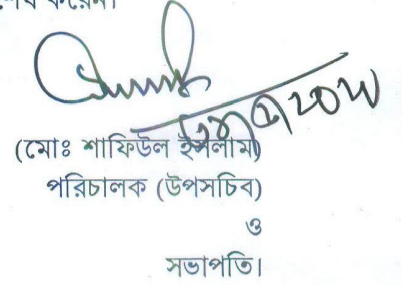 করেন।
(মোঃ শাফিউল ইসলাম)
পরিচালক (উপসচিব)
ও
সভাপতি।